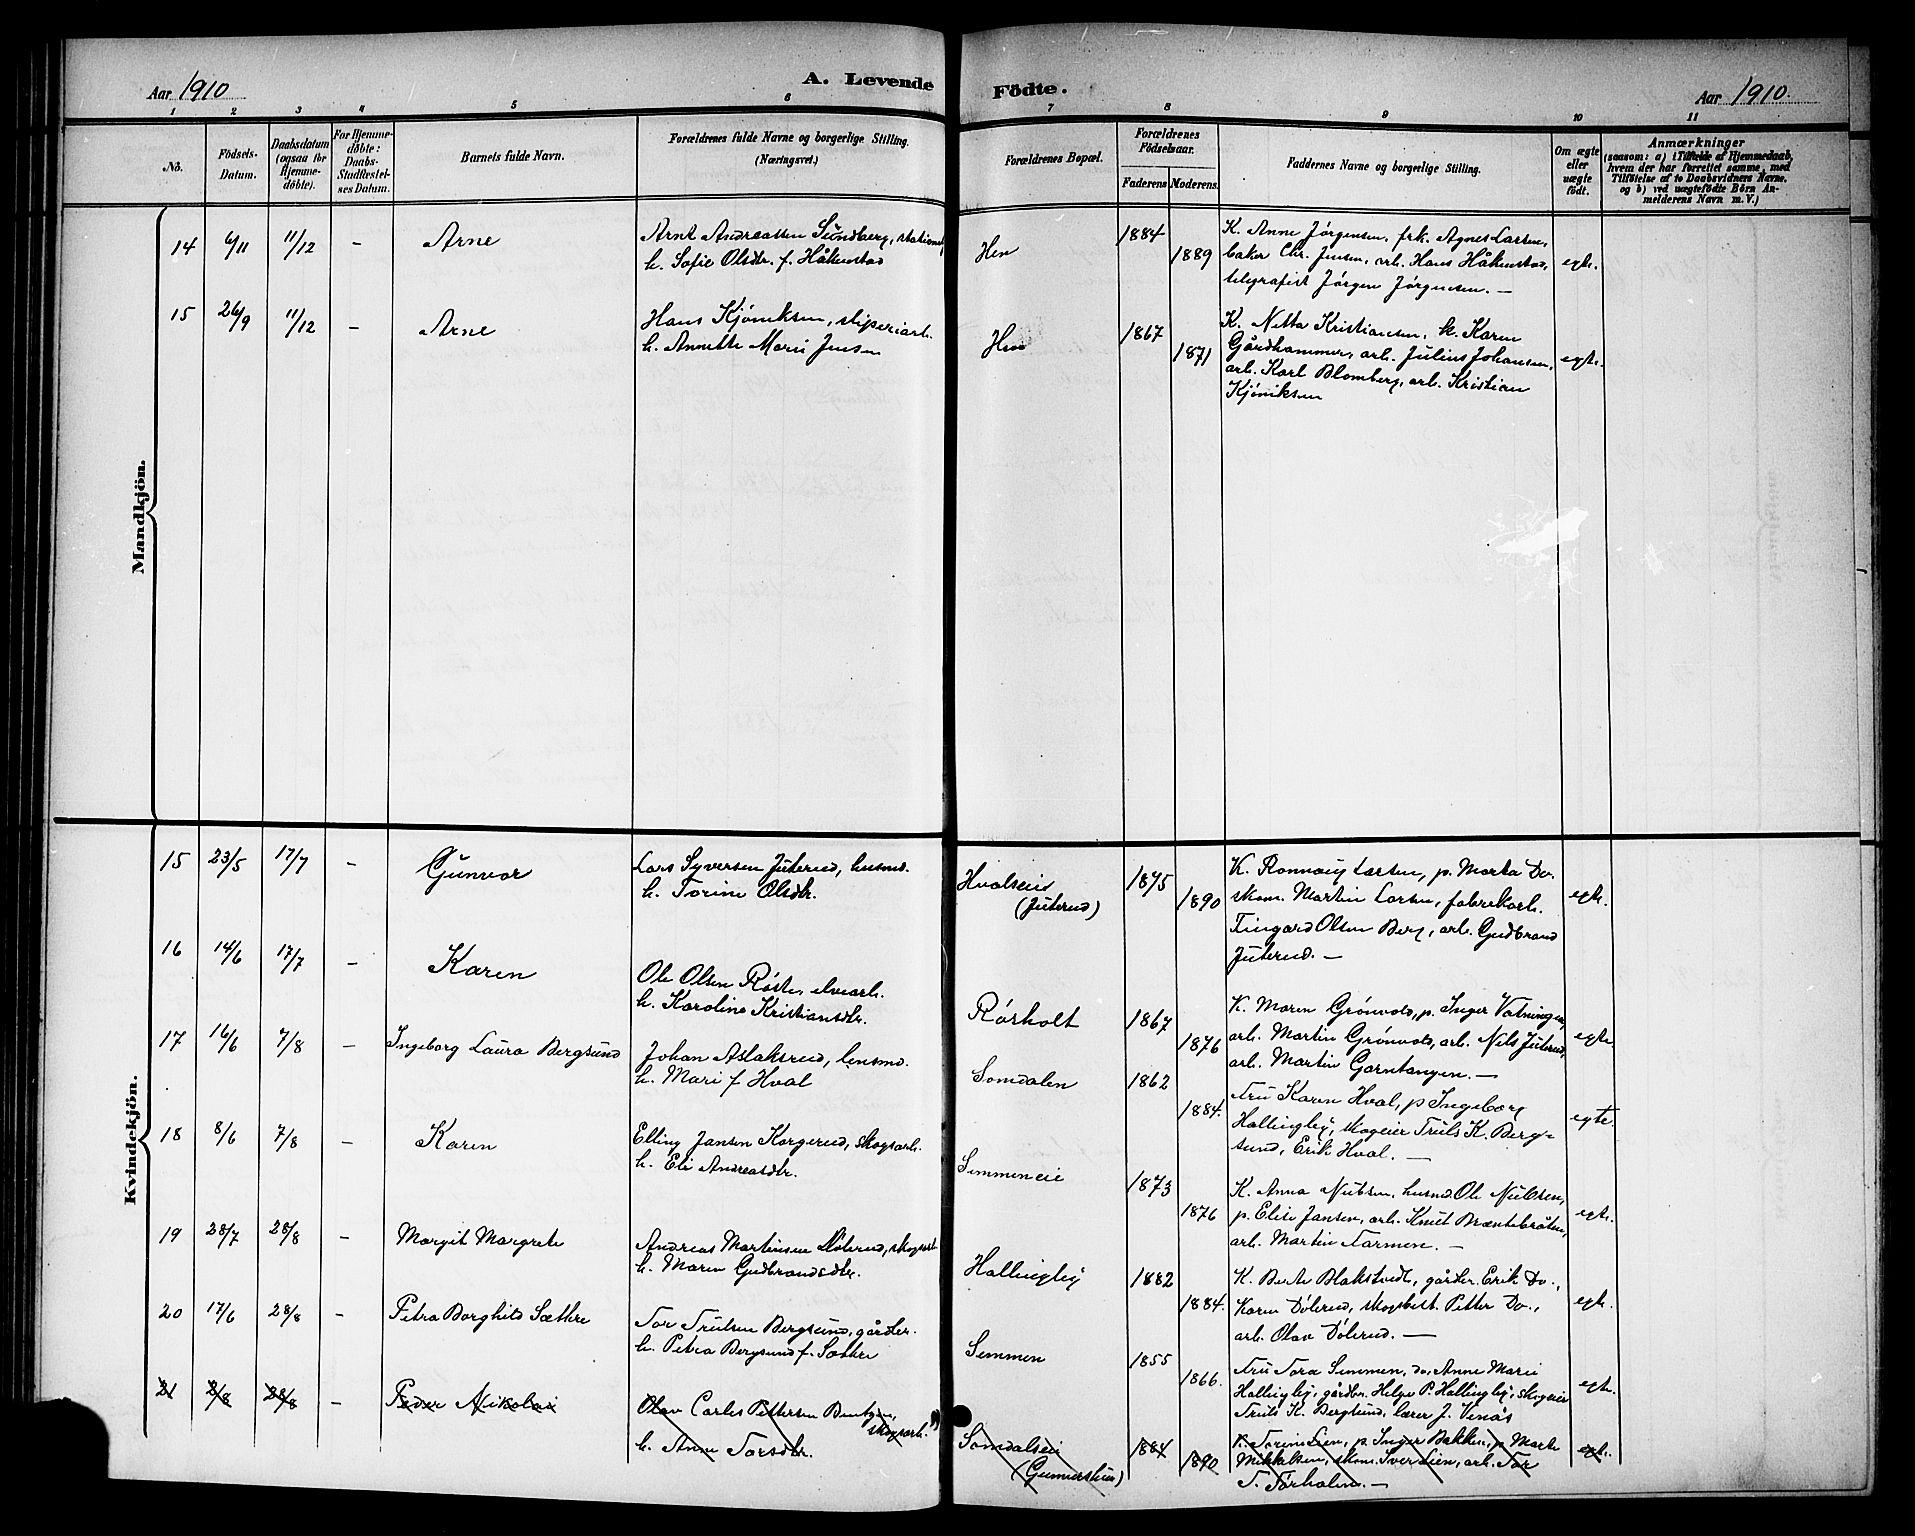 Aar 1910
A. Levende
Födte.
Aar 1910.
1 2 3 4 5 6 7 8 9 10 11
No.
Födsels-
Datum.
Daabsdatum
(ogsaa for
Hjemme-
döbte).
For Hjemme-
döbte:
Daabs-
Stadfæstel-
ses Datum.
Barnets fulde Navn.
Forældrenes fulde Navne og borgerlige Stilling.
(Næringsvei.)
Forældrenes Bopæl.
Forældrenes
Födselsaar.
Faderens. Moderens.
Faddernes Navne og borgerlige Stilling.
Om ægte
eller
uægte
födt.
Anmærkninger
(saasom: a) i Tilfælde af Hjemmedaab,
hvem der har forrettet samme, med
Tilföielse af to Daabsvidners Navne,
og b) ved uægtefödte Börn An-
melderens Navn m. V.)
Mandkjön.
14 6/11 11/12 - Arne
Arnt Andreassen Sundberg,
h. Sofie Olsdtr. f. Håkenstad
Hen 1884 1889
K. Anne Jørgensen, frk. Agnes Larsen,
baker Chr. Jensen, arb. Hans Håkenstad,
telegrafist Jørgen Jørgensen. —
egte.
15 26/9 11/12 - Arne
Hans Kjøniksen, sliperiarb.
h. Annette Marie Jensen
Hen 1867 1871
K. Netta Kristiansen, k. Karen
Gårdhammer, arb. Julius Johansen,
arb. Karl Blomberg, arb. Kristian
Kjøniksen
egte.
Kvindekjön.
15 23/5 17/7 - Gunvor
Lars Syversen Juterud, husmd.
h. Torine Olsdtr.
Hvalseie
(Juterud)
1875 1890
K. Ronnaug Larsen, p. Marta Do.
skom. Martin Larsen, fabrikarb.
Olsen Berg, arb. Gudbrand
Juterud. —
egte.
16 14/6 17/7 - Karen
Ole Olsen Røste, elvearb.
h. Karoline Kristiansdtr.
Rørholt 1867 1876
K. Maren Grønvold, p. Inger Vatningen,
arb. Martin Grønvold, arb. Nils Juterud,
arb. Martin Garntangen. —
egte.
17 16/6 7/8 - Ingeborg Laura Bergsund
Johan Aslaksrud, lensmd.
h. Mari f. Hval
Somdalen 1862 1884.
Fru Karen Hval, p Ingeborg
Hallingby, skogeier Truls K. Berg=
sund, Erik Hval. —
egte.
18 8/6 7/8 - Karen
Elling Jansen Korgerud, skogsarb.
h. Eli Andreasdtr.
Semmeneie 1873 1876
K. Anna Nubsen, husmd. Ole Nubsen,
p. Elise Jansen, arb. Knut Bræntebråten,
arb. Martin Tarmen. —
egte.
19 28/7 28/8 - Margit Margrete
Andreas Martinsen Dølerud, skogsarb.
h. Maren Gudbrandsdtr.
Hallingby 1882 1884.
K. Berte Blakstvedt, gårdbr. Erik Do.,
Karen Dølerud, skogbest. Petter Do.,
arb. Olav Dølerud. —
egte.
20 17/6 28/8 - Petra Borghild Sæthre
Tor Trulsen Bergsund, gårdbr.
h. Petra Bergsund f. Sæthre
Semmen 1855 1866.
Fru Tora Semmen, do. Anne Marie
Hallingby, gårdbr. Helge P. Hallingby, skogeier
Truls K. Bergsund, lærer J. Venås
egte.
21 2/8 28/8 - Peder Nikolai
Olav Carles Pettersen Bentzen,
skogsarb.
h. Anne Torsdtr.
Somdalseie
1884 1890
K. Torine Lien, p. Inger Bakken, p. Marte
Mikkelsen, skom. Iver Lien, arb. Tor
T. Tørholen. —
egte.